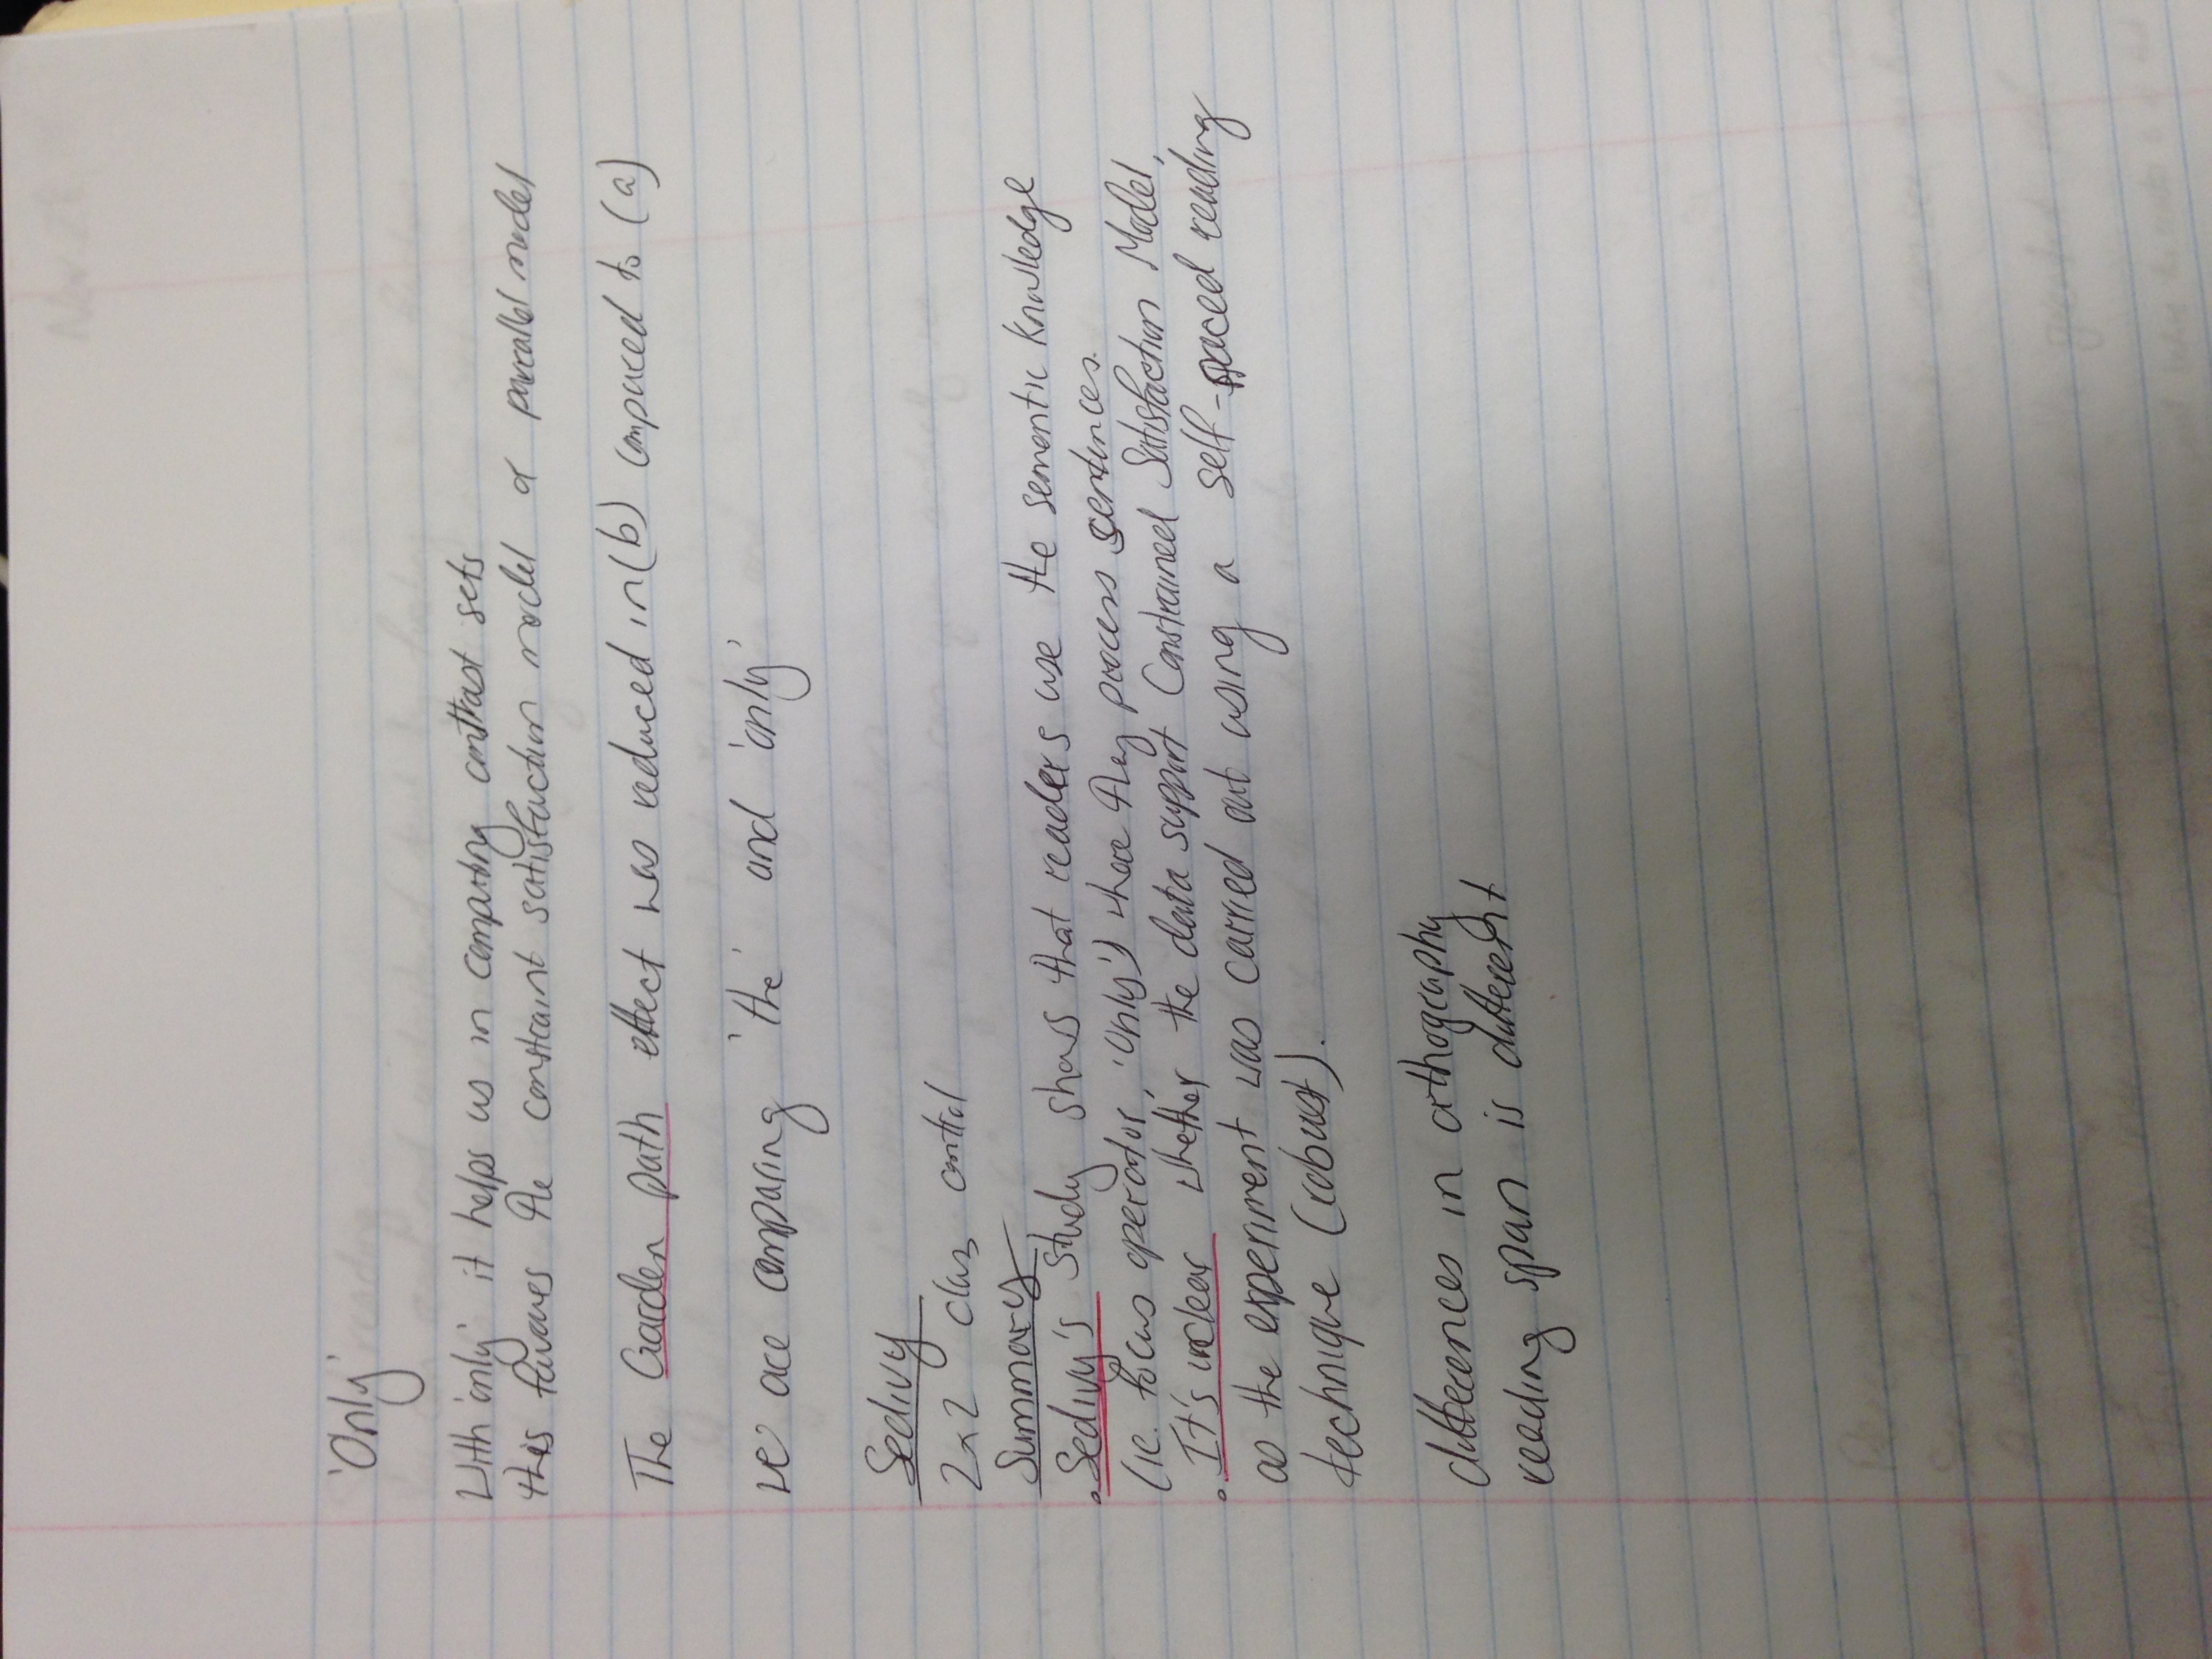 'Only'
With 'only' it helps us in comparing contrast sets
this favours the constraint satisfaction model a parallel model
The Garden path effect was reduced in (b) compared to (a)
we are comparing 'the' and 'only'
Sedivy
2x2 class control
Summary
• Sedivy's study shows that readers use the semantic knowledge
(ie. focus operator, 'only') when they process sentences.
• It's unclear whether the data support Constrained Satisfaction Model,
as the experiment was carried out using a self-paced reading
technique (robust).
differences in orthography
reading span is different